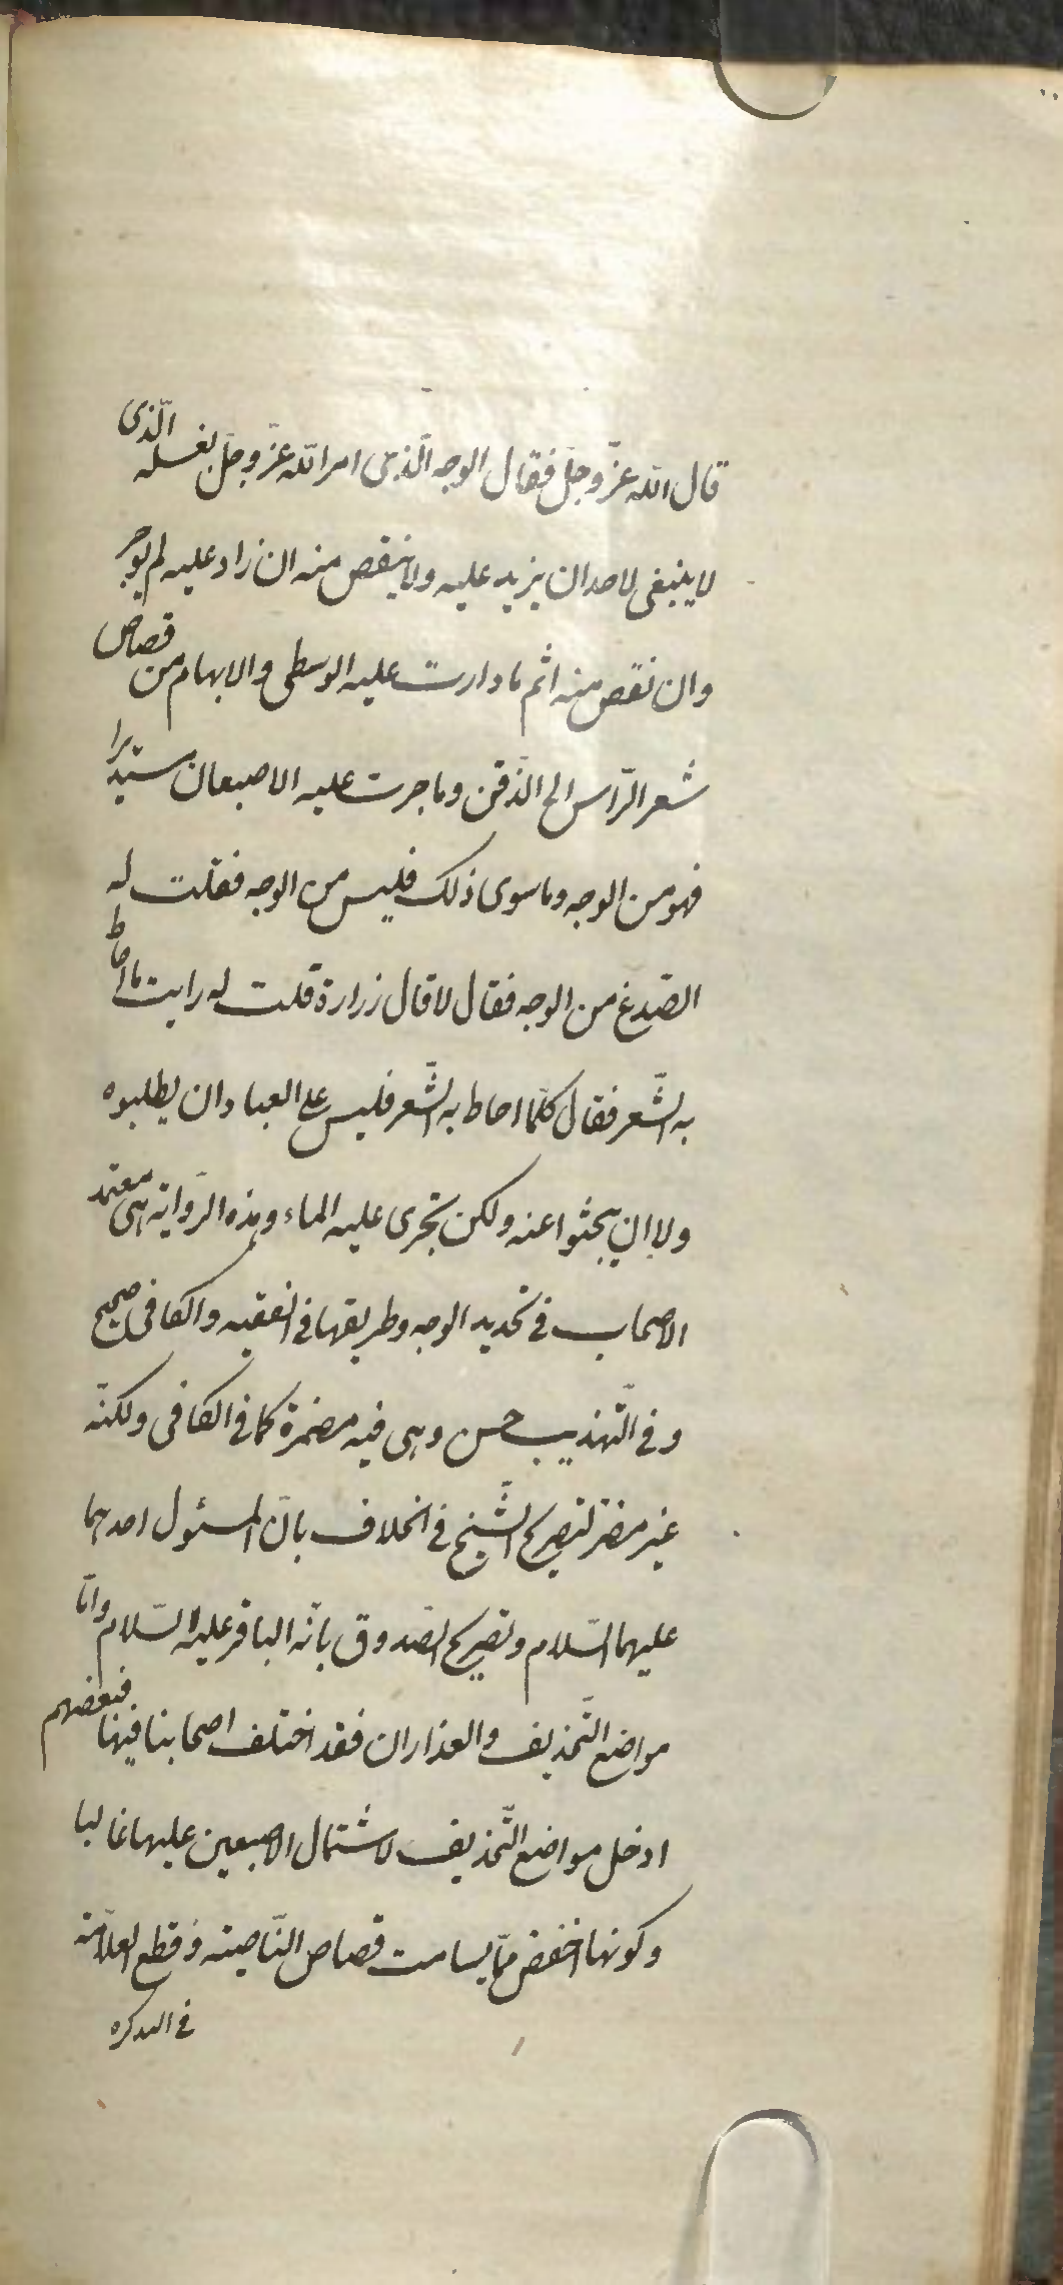 قال الله عزّ وجلّ فقال الوجه الّذى امر الله عزّ وجلّ بغسله الّذى
لا ينبغى لاحد ان يزيد عليه ولا ينقص منه ان زاد عليه لم يوجر
وان نقص منه اثم ما دارت عليه الوسطى والابهام من قصاص
شعر الرّاس الى الذّقن وما جرت عليه الاصبعان مستديرا
فهو من الوجه وما سوى ذلك فليس من الوجه فقلت له
الصّدغ من الوجه فقال لا قال زرارة قلت له رايت ما احاط
به الشّعر فقال كلّما احاط به الشّعر فليس على العباد ان يطلبوه
ولا ان يبحثوا عنه ولكن يجرى عليه الماء وهذه الرّواية هى معتمد
الاصحاب فى تحديد الوجه وطريقها فى الفقيه والكافى صحيح
وفى التّهذيب حسن وهى فيه مضمرة كما فى الكافى ولكنّه
غير مضر لتصريح الشّيخ فى الخلاف بانّ المسئول احدهما
عليهما السّلام وتصريح الصّدوق بانّه الباقر عليه السّلام وامّا
مواضع التّحذيف والعذاران فقد اختلف اصحابنا فيها فبعضهم
ادخل مواضع التّحذيف لاشتمال الاصبعين عليها غالبا
وكونها اخفض ممّا يسامت قصاص النّاصية وقطع العلاّمة
فى التذكره